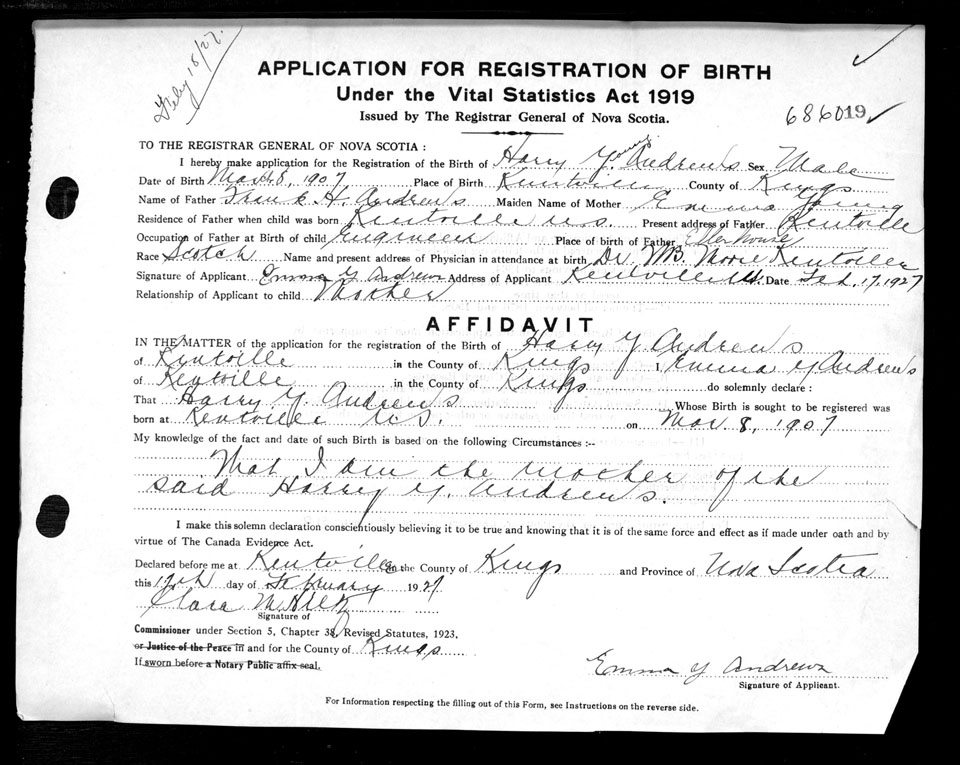 Feby 18/27.
APPLICATION FOR REGISTRATION OF BIRTH
Under the Vital Statistics Act 1919
Issued by The Registrar General of Nova Scotia.
686019
TO THE REGISTRAR GENERAL OF NOVA SCOTIA :
I hereby make application for the Registration of the Birth of Harry Young Andrews Sex Male
Date of Birth Mar 8, 1907 Place of Birth Kentville County of Kings
Name of Father Frank H. Andrews Maiden Name of Mother Emma Young
Residence of Father when child was born Kentville N.S. Present address of Father Kentville
Occupation of Father at Birth of child Engineer Place of birth of Father
Race Scotch Name and present address of Physician in attendance at birth Dr. Moore Kentville
Signature of Applicant Emma Y Andrews Address of Applicant Kentville N.S. Date Feb. 17, 1927
Relationship of Applicant to child Mother
AFFIDAVIT
IN THE MATTER of the application for the registration of the Birth of Harry Y Andrews
of Kentville in the County of Kings I, Emma Y Andrews
of Kentville in the County of Kings do solemnly declare :
That Harry Y. Andrews Whose Birth is sought to be registered was
born at Kentville N.S. on Mar 8, 1907
My knowledge of the fact and date of such Birth is based on the following Circumstances :--
That I am the mother of the
said Harry Y. Andrews.
I make this solemn declaration conscientiously believing it to be true and knowing that it is of the same force and effect as if made under oath and by
virtue of The Canada Evidence Act.
Declared before me at Kentville in the County of Kings and Province of Nova Scotia
this 17th day of February 1927
Clara
Signature of
Commissioner under Section 5, Chapter 38, Revised Statutes, 1923,
or Justice of the Peace in and for the County of Kings
If sworn before a Notary Public affix seal.
Emma Y Andrews
Signature of Applicant.
For Information respecting the filling out of this Form, see Instructions on the reverse side.